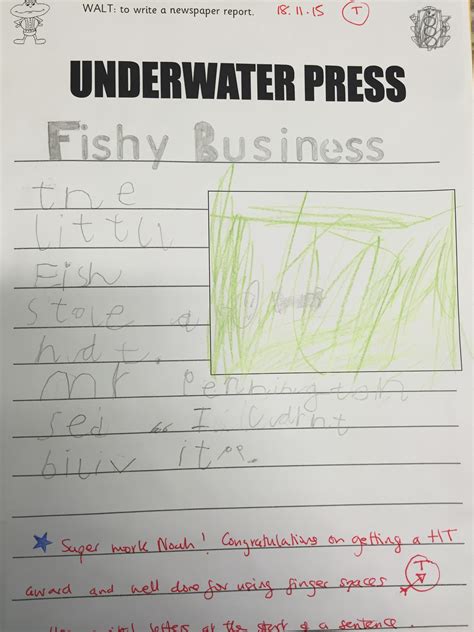 WALT: to write a newspaper report. 18.11.15 T
UNDERWATER PRESS
Fishy Business
the
littll
Fish
stole a
hdt.
mr Pennington
sed "I cudnt
biliv it".
Super work Noah! Congratulations on getting a HT
award and well done for using finger spaces. T
letters at the start of a sentence.